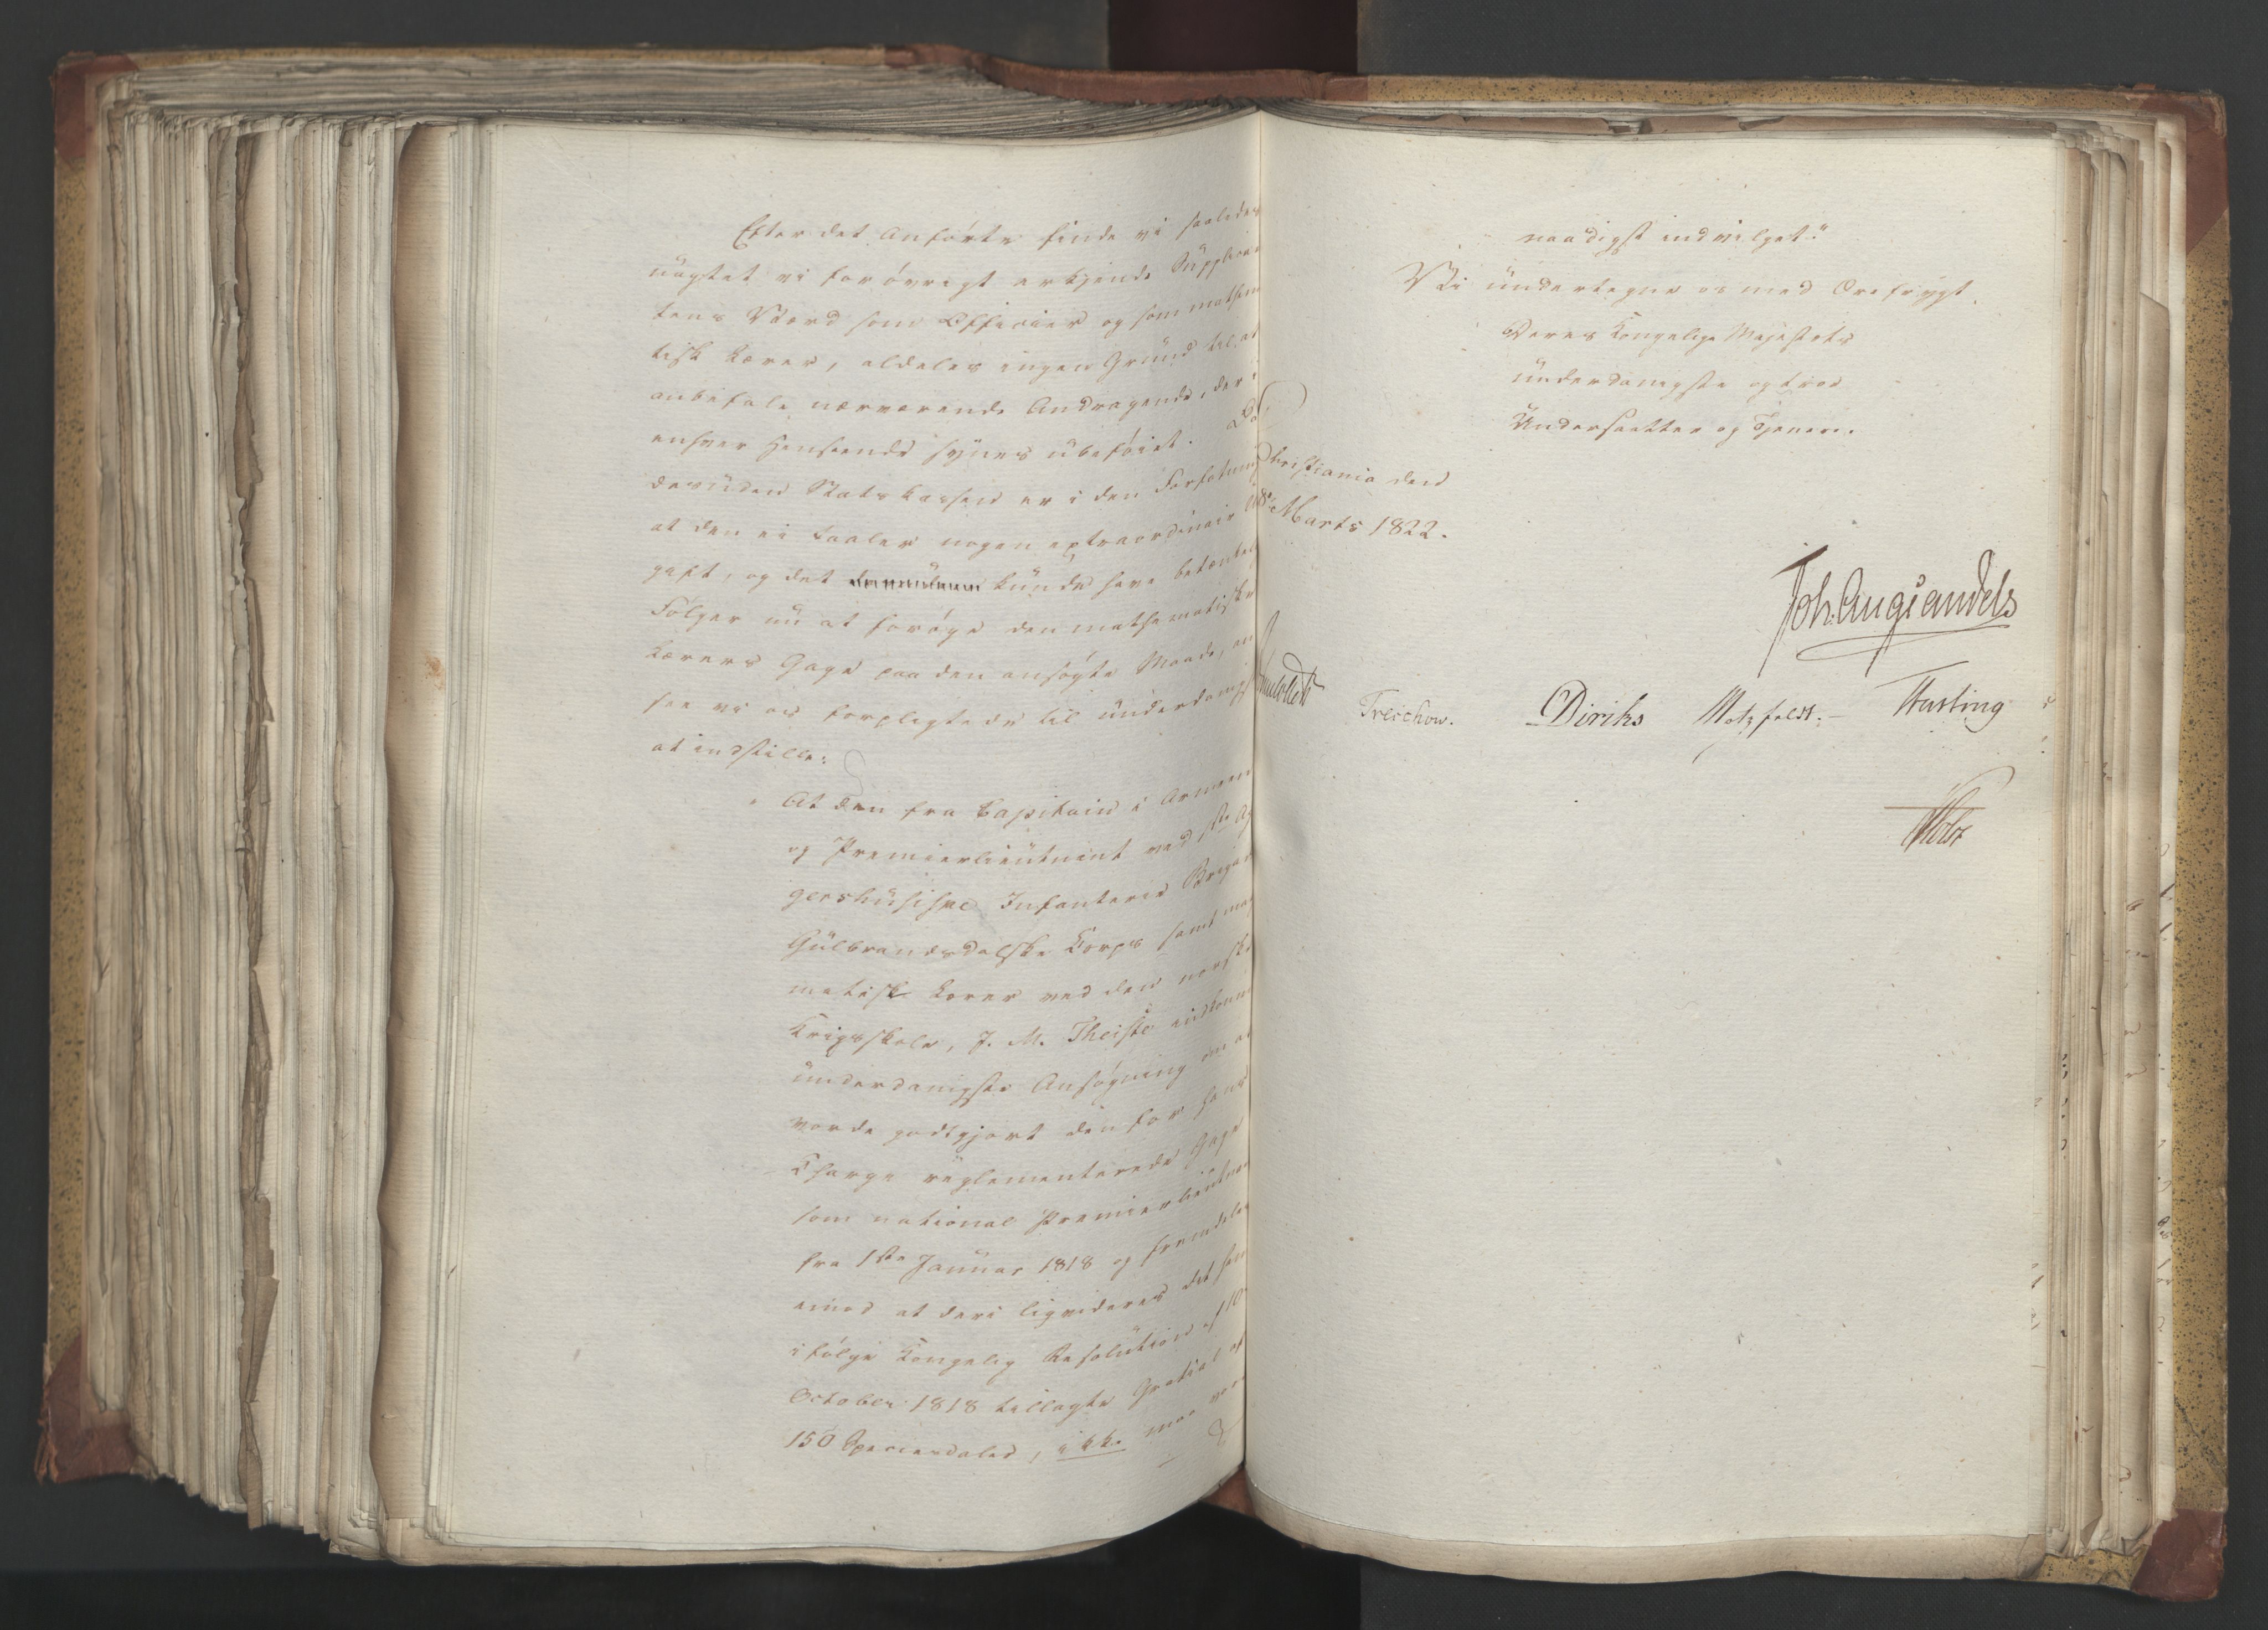 Efter det Anförte finde vi saaledes
uagtet vi forövrigt erkjende Supplican
tens Værd som Officier og som mathem
tisk Lærer, aldeles ingen Grund til at
anbefale nærværende Andragende, der i
enhver Henseende synes ubeföiet. Da
desuden Statskassen er i den Forfatning
at den ei taaler nogen extraordinair Ud
gift, og det kunde have betænkel
Fölger nu at foröge den mathematiske
Lærers Gage paa den ansögte Maade, an
see vi os forpligtede til underdanigst
at indstille:
"At den fra Capitain i Armeen
og Premierlieutnint ved 1ste Ag
gershusiske Infanterie Brigad
Gulbrandsdalske Korps samt mathe
matisk Lærer ved den norske
Krigsskole, J. M. Theiste indkomne
underdanigste Ansögning om at
vorde godtgjort den for hans
Charge reglementerede Gage
som national Premierlieutnant
fra 1ste Januar 1818 og fremdeles
imod at deri ligvideres det ham
ifölge Kongelig Resolution af 10
October 1818 tillagte Gratial af
150 Speciesdaler, ikke maa vorde
naadigst indvilget."
Vi undertegne os med Ærefrygt
Deres Kongelige Majestæts
underdanigste og troe
Undersaatter og Tjenere.
Christiania den
8de Marts 1822.
Joh. Aug. Sandels
Treschow. Diriks Motzfeldt. Fasting
Holst